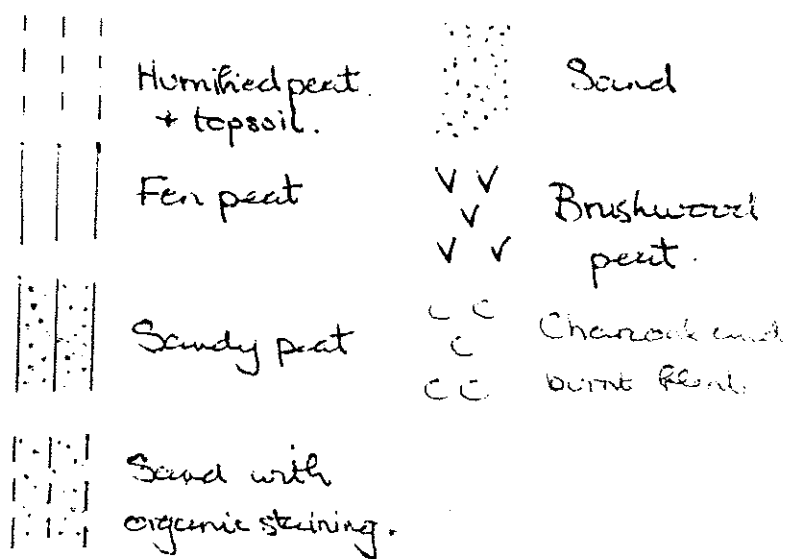 Humified peat.
+ topsoil.
Fen peat
Sandy peat
Sand with
organic staining.
Sand
V V
V
V V
Brushwood
peat.
C C
C
C C
Charcoal and
burnt flint.